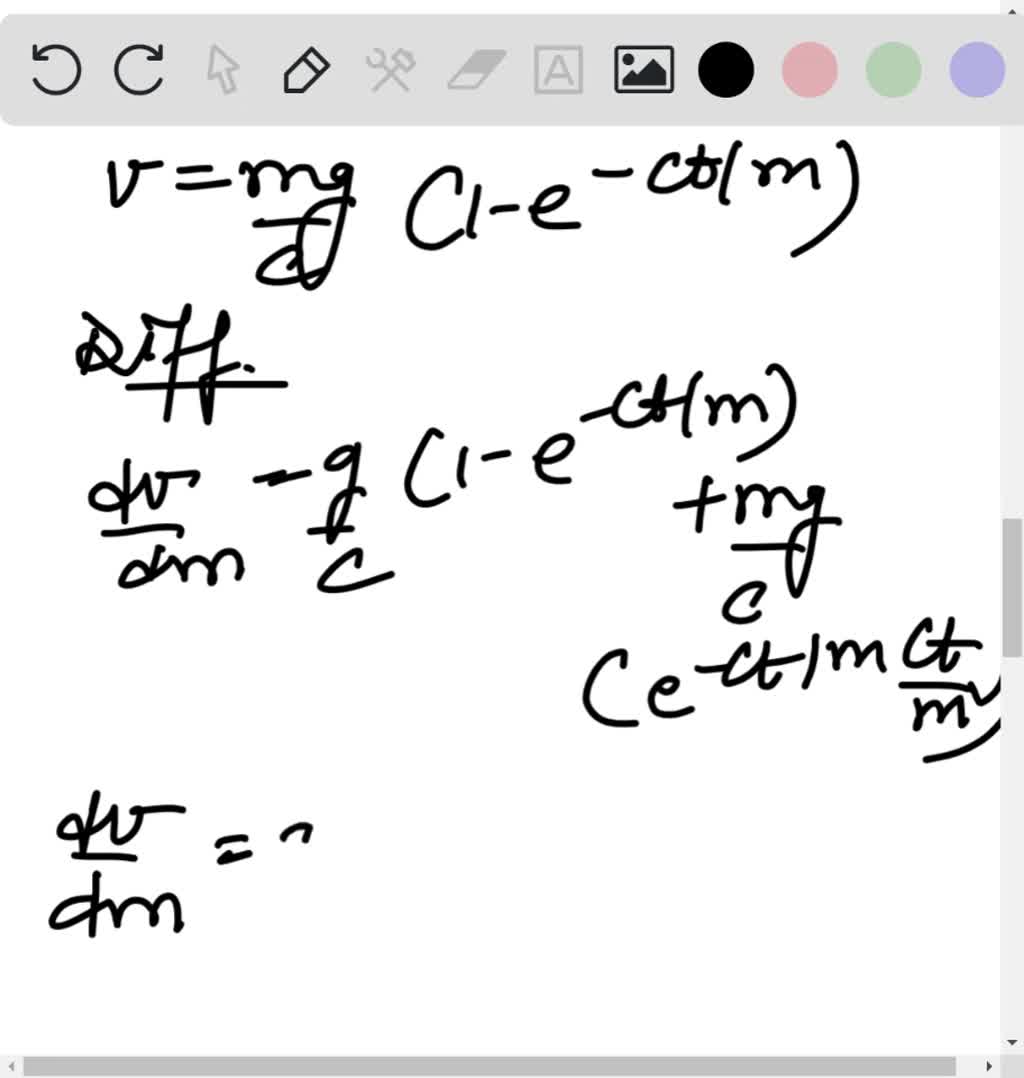 v = mg/c (1-e^-ct/m)
Diff.
dv/dm = g/c (1-e^-ct/m)
+ mg/c
(e^-ct/m ct/m²)
dv/dm =